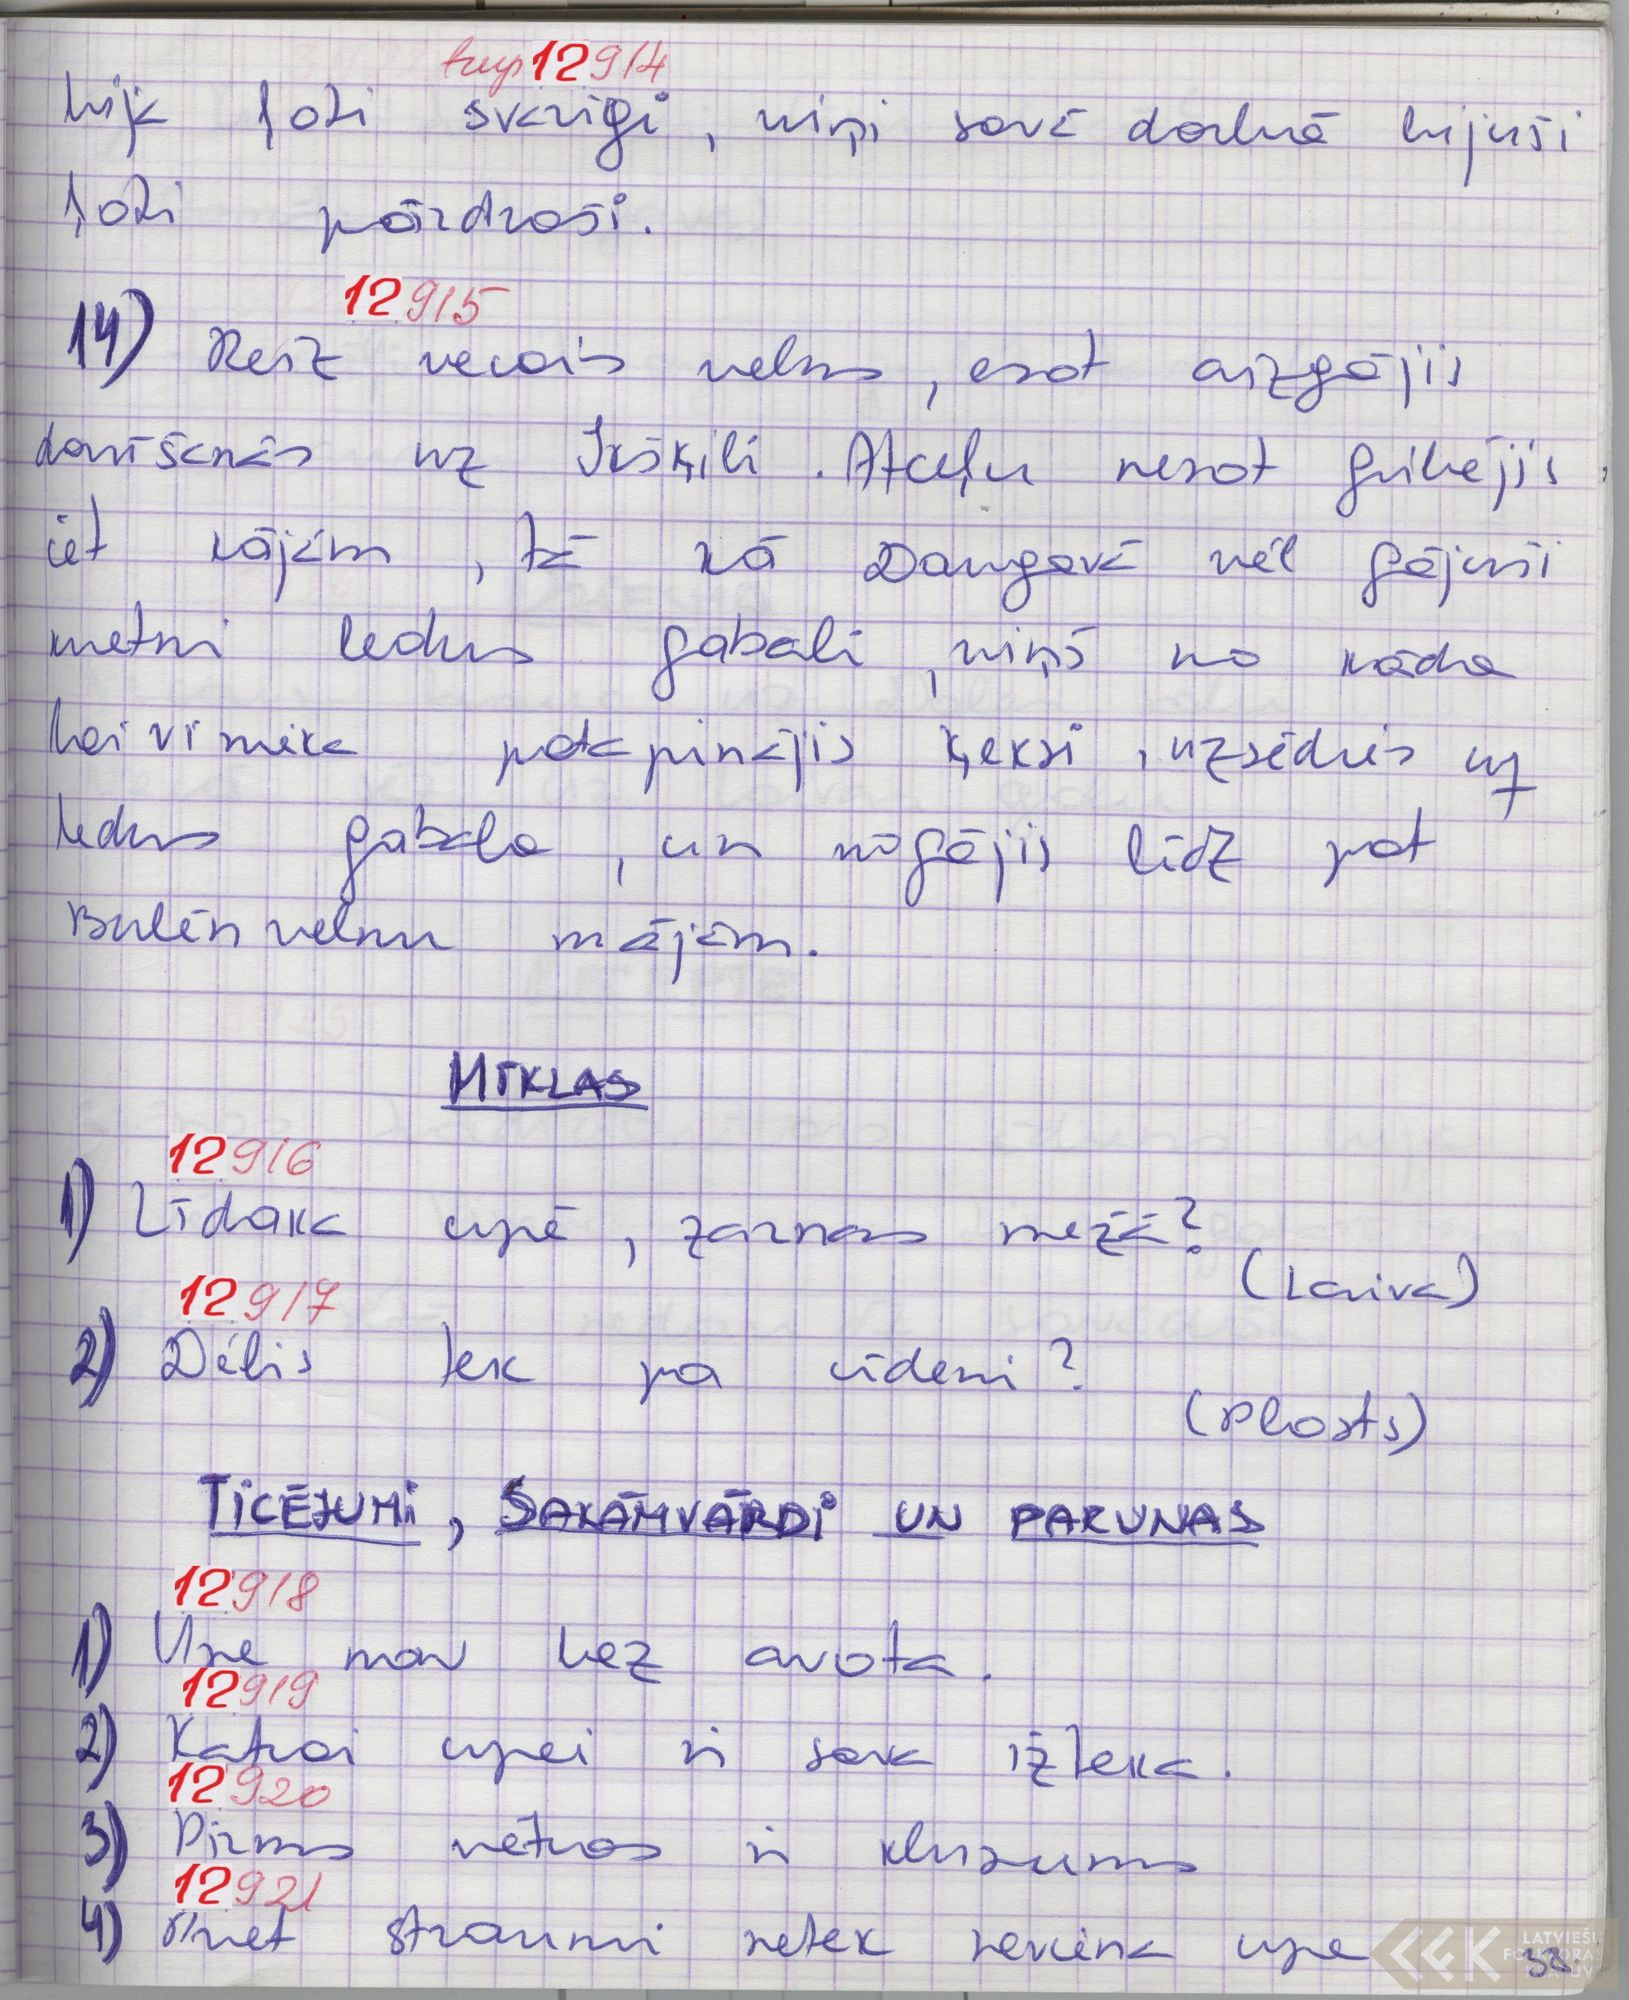 turp 12914
bija ļoti svarīgi, viņi savā darbā bijuši
ļoti pārdroši.
12915
14) Reiz vecais velns, esot aizgājis
darīšanās uz Ikšķili. Atceļu nesot gribējis
iet kājām, tā kā Daugavā vēl gājuši
metni ledus gabali, viņš no kāda
laivinieka patapinājis ķeksi, uzsēdies uz
ledus gabala, un nogājis līdz pat
Bulēnvelnu mājām.
MĪKLAS
12916
1) Līdaka upē, zarnas mežā?
(Laiva)
12917
2) Dēlis tek pa ūdeni?
(Plosts)
TICĒJUMI, SAKĀMVĀRDI UN PARUNAS
12918
1) Upe nav bez avota.
12919
2) Katrai upei ir sava izteka.
12920
3) Pirms vētras ir klusums
12921
4) Pret straumi netek neviena upe
LATVIEŠU
FOLKLORAS
KRĀTUVE
38.